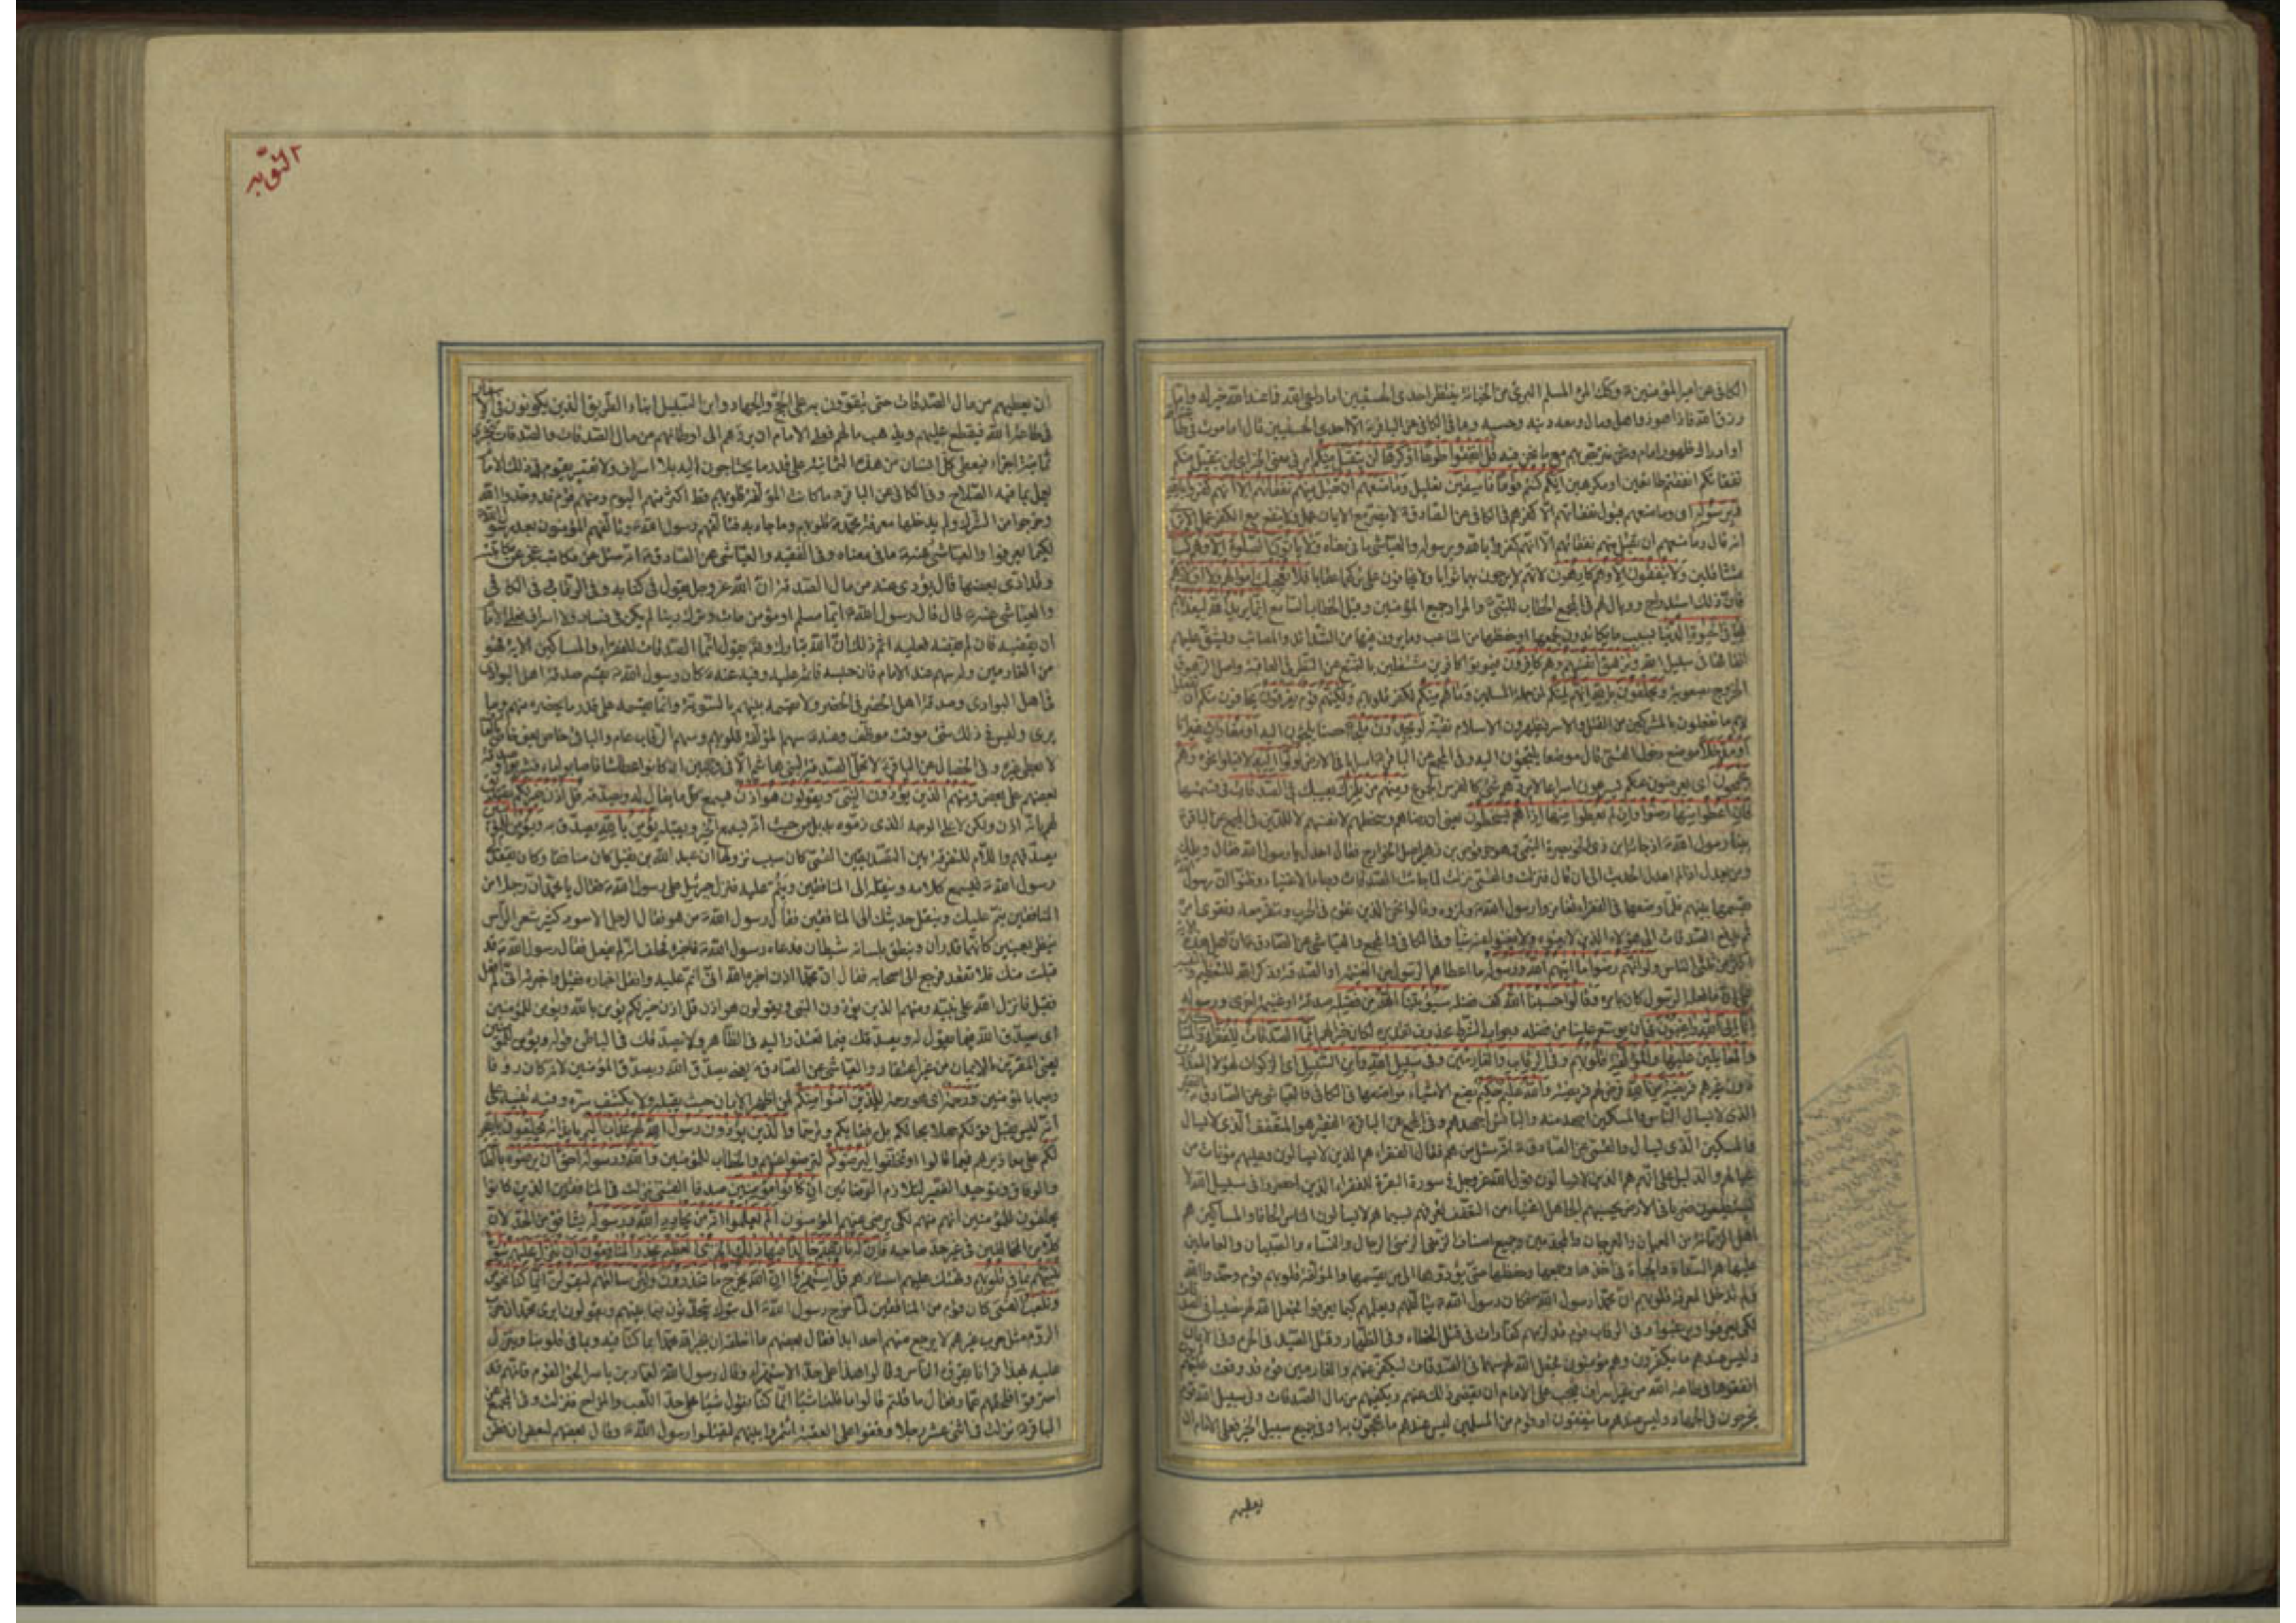 الكافى عن امير المؤمنين ع وكذلك المرء المسلم البرئ من الخيانة ينتظر احدى الحسنيين اما داعى الله فما عند الله خير له واما
رزق الله فاذا هو ذو اهل ومال ومعه دينه وحسبه وفى الكافى عن الباقر ع الا احدى الحسنيين قال اما موت فى طاعة الله
او ادراك ظهور امام ونحن نتربص بهم مع ما نحن فيه قل انفقوا طوعا او كرها لن يتقبل منكم امر فى معنى الخبر اى لن يتقبل منكم
نفقاتكم انفقتم طائعين او مكرهين انكم كنتم قوما فاسقين تعليل وما منعهم ان تقبل منهم نفقاتهم الا انهم كفروا بالله
وبرسوله اى وما منعهم قبول نفقاتهم الا كفرهم فى الكافى عن الصادق ع لا يضر مع الايمان عمل ولا ينفع مع الكفر عمل الا ترى
انه قال وما منعهم ان تقبل منهم نفقاتهم الا انهم كفروا بالله وبرسوله والعياشى ما فى معناه ولا ياتون الصلوة الا وهم كسالى
متثاقلين ولا ينفقون الا وهم كارهون لانهم لا يرجون بهما ثوابا ولا يخافون على تركهما عقابا فلا تعجبك اموالهم ولا اولادهم
فان ذلك استدراج ووبال لهم فى المجمع الخطاب للنبى والمراد جميع المؤمنين وقيل الخطاب للسامع انما يريد الله ليعذبهم
بها فى الحيوة الدنيا بسبب ما يكابدون لجمعها وحفظها من المتاعب وما يرون فيها من الشدائد والمصائب ويشق عليهم
انفاقها فى سبيل الله وتزهق انفسهم وهم كافرون فيموتوا كافرين مشتغلين بالتمتع عن النظر فى العاقبة واصل الزهوق
الخروج بصعوبة ويحلفون بالله انهم لمنكم لمن جملة المسلمين وما هم منكم لكفر قلوبهم ولكنهم قوم يفرقون يخافون منكم ان
بهم ما تفعلون بالمشركين من القتل والاسر فيظهرون الاسلام تقية لو يجدون ملجأ حصنا يلجئون اليه او مغارات غيرانا
او مدخلا موضع دخول القمى قال موضعا يلتجئون اليه وفى المجمع عن الباقر ع اسرابا فى الارض لولوا اليه لاقبلوا نحوه وهم
يجمحون اى يعرضون عنكم يسرعون اسراعا لا يردهم شئ كالفرس الجموح ومنهم من يلمزك يعيبك فى الصدقات فى قسمتها
فان اعطوا منها رضوا وان لم يعطوا منها اذا هم يسخطون يعنى ان رضاهم وسخطهم لانفسهم لا للدين فى المجمع عن الباقر ع
بينا رسول الله ص اذ جاءه ابن ذى الخويصرة التميمى وهو حرقوص بن زهير اصل الخوارج فقال اعدل يا رسول الله فقال ويلك
ومن يعدل اذا لم اعدل الحديث الى ان قال فنزلت والقمى نزلت لما جاءت الصدقات وجاء الاغنياء وظنوا ان رسول الله
يقسمها بينهم فلما وضعها فى الفقراء تغامزوا رسول الله ص ولمزوه وقالوا نحن الذين نقوم فى الحرب وننفر معه ونقوى امره
ثم يدفع الصدقات الى هؤلاء الذين لا يعينوه ولا يغنون عنه شيئا وفى الكافى والمجمع والعياشى عن الصادق ع ان اهل هذه
اكثر من ثلثى الناس ولو انهم رضوا ما اتيهم الله ورسوله ما اعطاهم الرسول من الغنيمة او الصدقة وذكر الله للتعظيم
على ان ما فعله الرسول كان بامره وقالوا حسبنا الله كفى فضله سيؤتينا الله من فضله صدقة او غنيمة اخرى ورسوله
انا الى الله راغبون فى ان يوسع علينا من فضله وجواب الشرط محذوف تقديره لكان خيرا لهم انما الصدقات للفقراء والمساكين
والعاملين عليها والمؤلفة قلوبهم وفى الرقاب والغارمين وفى سبيل الله وابن السبيل اى الزكوات لهؤلاء المعدودين
دون غيرهم فريضة من الله فرض لهم فريضة والله عليم حكيم يضع الاشياء مواضعها فى الكافى والعياشى عن الصادق ع
الذى لا يسال الناس والمسكين اجهد منه والبائس اجهدهم وفى المجمع عن الباقر ع الفقير هو المتعفف الذى لا يسال
والمسكين الذى يسال والقمى عن الصادق ع انه سئل من هم فقال الفقراء هم الذين لا يسالون وعليهم مؤنات من
عيالهم والدليل على انهم هم الذين لا يسالون قول الله عز وجل فى سورة البقرة للفقراء الذين احصروا فى سبيل الله لا
يستطيعون ضربا فى الارض يحسبهم الجاهل اغنياء من التعفف تعرفهم بسيماهم لا يسالون الناس الحافا والمساكين هم
اهل الزمانة من العميان والعرجان والمجذمين وجميع اصناف الزمنى الرجال والنساء والصبيان والعاملين
عليها هم السعاة والجباة فى اخذها وجمعها وحفظها حتى يؤدوها الى من يقسمها والمؤلفة قلوبهم قوم وحدوا الله
ولم تدخل المعرفة قلوبهم ان محمدا رسول الله فكان رسول الله ص يتالفهم ويعلمهم كيما يعرفوا فجعل الله لهم نصيبا فى الصدقات
لكى يعرفوا ويرغبوا وفى الرقاب قوم قد لزمهم كفارات فى قتل الخطاء وفى الظهار وقتل الصيد فى الحرم وفى الايمان
وليس عندهم ما يكفرون وهم مؤمنون فجعل الله لهم سهما فى الصدقات ليكفر عنهم والغارمين قوم قد وقعت عليهم ديون
انفقوها فى طاعة الله من غير اسراف فيجب على الامام ان يقضى ذلك عنهم ويكفيهم من مال الصدقات وفى سبيل الله قوم
يخرجون فى الجهاد وليس عندهم ما ينفقون او قوم من المسلمين ليس عندهم ما يحجون به او فى جميع سبيل الخير فعلى الامام ان
يعطيهم
التوبة
ان يعطيهم من مال الصدقات حتى يتقوون به على الحج والجهاد وابن السبيل ابناء الطريق الذين يكونون فى الاسفار
فى طاعة الله فيقطع عليهم ويذهب مالهم فعلى الامام ان يردهم الى اوطانهم من مال الصدقات والصدقات تتجزى
ثمانية اجزاء فيعطى كل انسان من هذه الثمانية على قدر ما يحتاجون اليه بلا اسراف ولا تقتير يقوم فى ذلك الامام
يعمل بما فيه الصلاح وفى الكافى عن الباقر ع ما كانت المؤلفة قلوبهم قط اكثر منهم اليوم ومنهم قوم قد وحدوا الله
وخرجوا من الشرك ولم يدخلها معرفة محمد ص قلوبهم وما جاء به فتالفهم رسول الله ص وتالفهم المؤمنون بعد رسول الله ص
لكيما يعرفوا والعياشى عنه ع ما فى معناه وفى الفقيه والعياشى عن الصادق ع انه سئل عن مكاتب عجز عن مكاتبته
وقد ادى بعضها قال يؤدى عنه من مال الصدقة ان الله عز وجل يقول فى كتابه وفى الرقاب فى الكافى
والعياشى عنه ع قال قال رسول الله ص ايما مسلم او مؤمن مات وترك دينا لم يكن فى فساد ولا اسراف فعلى الامام
ان يقضيه فان لم يقضه فعليه اثم ذلك ان الله تبارك وتعالى يقول انما الصدقات للفقراء والمساكين الاية فهو
من الغارمين وله سهم عند الامام فان حبسه فاثمه عليه وفيه عنه ع كان رسول الله ص يقسم صدقة اهل البوادى
فى اهل البوادى وصدقة اهل الحضر فى الحضر ولا يقسمه بينهم بالسوية وانما يقسمه على قدر ما يحضره منهم وما
يرى وليس فى ذلك شئ موقت موظف وعنه ع سهم المؤلفة قلوبهم وسهم الرقاب عام والباقى خاص يعنى خاص
لا يعطى غيره وفى الخصال عن الباقر ع لا تحل الصدقة لبنى هاشم الا فى وجهين ان كانوا عطاشا فاصابوا ماء فشربوا وصدقة
بعضهم على بعض ومنهم الذين يؤذون النبى ويقولون هو اذن يسمع كل ما يقال له ويصدقه قل اذن خير لكم تصديق
لهم بانه اذن ولكن لا على الوجه الذى ذموه به بل من حيث انه يسمع الخير ويقبله يؤمن بالله يصدق به ويؤمن للمؤمنين
يصدقهم واللام للتفرقة بين التصديقين القمى كان سبب نزولها ان عبد الله بن نفيل كان منافقا وكان يقعد
رسول الله ص فيسمع كلامه وينقله الى المنافقين وينم عليه فنزل جبرئيل على رسول الله ص فقال يا محمد ان رجلا من
المنافقين ينم عليك وينقل حديثك الى المنافقين فقال رسول الله ص من هو فقال الرجل الاسود كثير شعر الراس
ينظر بعينين كانهما قدران وينطق بلسان شيطان فدعاه رسول الله ص فاخبره فحلف انه لم يفعل فقال رسول الله ص قد
قبلت منك فلا تقعد فرجع الى اصحابه فقال ان محمدا اذن اخبره الله انى انم عليه وانقل اخباره فقبل واخبرته انى لم افعل
فقبل فانزل الله على نبيه ومنهم الذين يؤذون النبى ويقولون هو اذن قل اذن خير لكم يؤمن بالله ويؤمن للمؤمنين
اى يصدق الله فيما يقول له ويصدقك فيما تعتذر اليه فى الظاهر ولا يصدقك فى الباطن قوله ويؤمن للمؤمنين
يعنى المقرين بالايمان من غير اعتقاد والعياشى عن الصادق ع يعنى يصدق الله ويصدق المؤمنين لانه كان رؤفا
رحيما بالمؤمنين ورحمة اى هو رحمة للذين امنوا منكم لمن اظهر الايمان حيث يقبله ولا يكشف سره وفيه تنبيه على
انه ليس يقبل قولكم جهلا بحالكم بل رفقا بكم وترحما والذين يؤذون رسول الله لهم عذاب اليم بايذائه يحلفون بالله
لكم على معاذيرهم فيما قالوا او تخلفوا ليرضوكم لترضوا عنهم والخطاب للمؤمنين والله ورسوله احق ان يرضوه بالطاعة
والوفاق وتوحيد الضمير لتلازم الرضائين ان كانوا مؤمنين صدقا القمى نزلت فى المنافقين الذين كانوا
يحلفون للمؤمنين انهم منهم لكى يرضى عنهم المؤمنون الم يعلموا انه من يحادد الله ورسوله يشاقق من الحد لان
كلا من المخالفين فى غير حد صاحبه فان له نار جهنم خالدا فيها ذلك الخزى العظيم يحذر المنافقون ان تنزل عليهم سورة
تنبئهم بما فى قلوبهم وتهتك عليهم استارهم قل استهزؤا ان الله مخرج ما تحذرون ولئن سالتهم ليقولن انما كنا نخوض
ونلعب القمى كان قوم من المنافقين لما خرج رسول الله ص الى تبوك يتحدثون فيما بينهم ويقولون ايرى محمد ان حرب
الروم مثل حرب غيرهم لا يرجع منهم احد ابدا فقال بعضهم ما اخلقه ان يخبر الله محمدا بما كنا فيه وبما فى قلوبنا وينزل
عليه بهذا قرانا يقرؤه الناس وقالوا هذا على حد الاستهزاء فقال رسول الله ص لعمار بن ياسر الحق القوم فانهم قد
احترقوا فلحقهم عمار فقال ما قلتم قالوا ما قلنا شيئا انما كنا نقول شيئا على حد اللعب والمزاح فنزلت وفى المجمع عن
الباقر ع نزلت فى اثنى عشر رجلا وقفوا على العقبة ائتمروا بينهم ليقتلوا رسول الله ص وقال بعضهم لبعض ان فطن